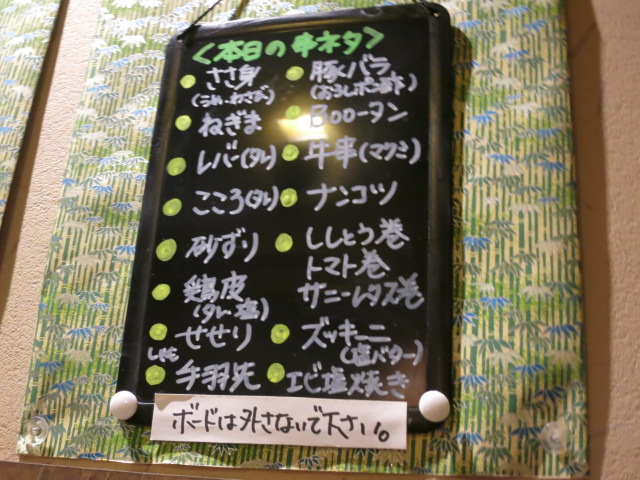 <本日の串ネタ>
ささ身
(うめ・わさび)
ねぎま
レバー(タレ)
こころ(タレ)
砂ずり
鶏皮
(タレ・塩)
せせり
手羽先
豚バラ
(おろしポン酢)
Boo-タン
牛串(マクミ)
ナンコツ
ししとう巻
トマト巻
サニーレタス巻
ズッキーニ
(塩バター)
エビ塩焼き
ボードは外さないで下さい。